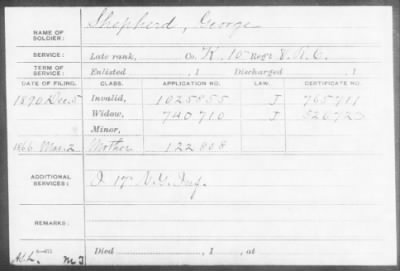 NAME OF SOLDIER: Shepherd, George
SERVICE: Late rank, Co. K, 10 Reg't V.R.C.
TERM OF SERVICE: Enlisted , 1 Discharged , 1
DATE OF FILING. CLASS. APPLICATION NO. LAW. CERTIFICATE NO.
1890 Dec. 5 Invalid, 1025855 J 765911
Widow, 740710 J 520723
Minor,
1866 Mar. 2 Mother 122808
ADDITIONAL SERVICES: I 17" N.Y. Inf.
REMARKS:
Died , 1 , at